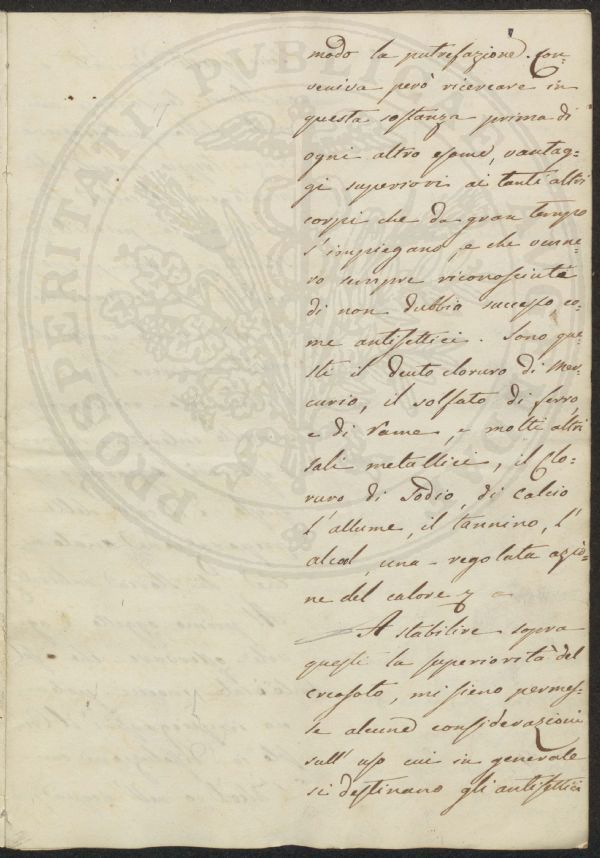 modo la putrefazione. Con=
veniva però ricercare in
questa sostanza prima di
ogni altro esame, vantag=
gi superiori ai tanti altri
corpi che da gran tempo
s'impiegano, e che venne=
ro sempre riconosciuti
di non dubbio successo co=
me antisettici. Sono que=
sti il deuto cloruro di Mer=
curio, il solfato di ferro,
e di rame, e molti altri
sali metallici, il Clo=
ruro di Sodio, di Calcio
l'allume, il tannino, l'
alcool, una regolata azio=
ne del calore
A stabilire sopra
questi la superiorità del
creosoto, mi sieno permes=
se alcune considerazioni
sull'uso cui in generale
si destinano gli antisettici
PROSPERITATI PUBLICAE